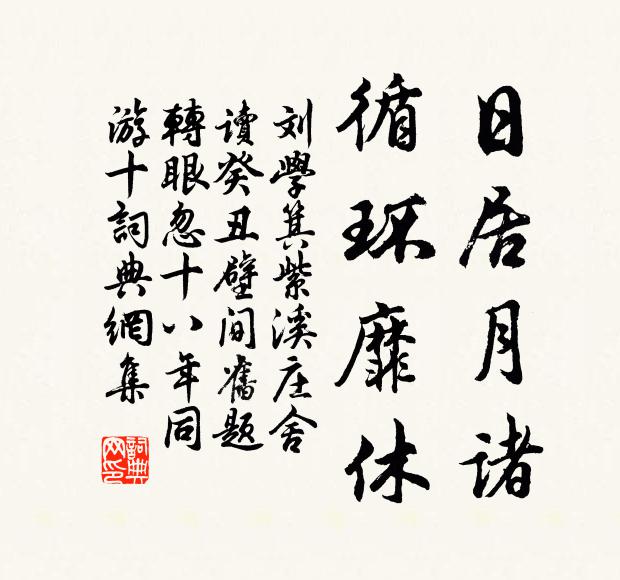 日居月诸
循环靡休
刘學箕紫溪庄舍
读癸丑壁间舊题
轉眼忽十八年同
游十詞典網集
詞典网印